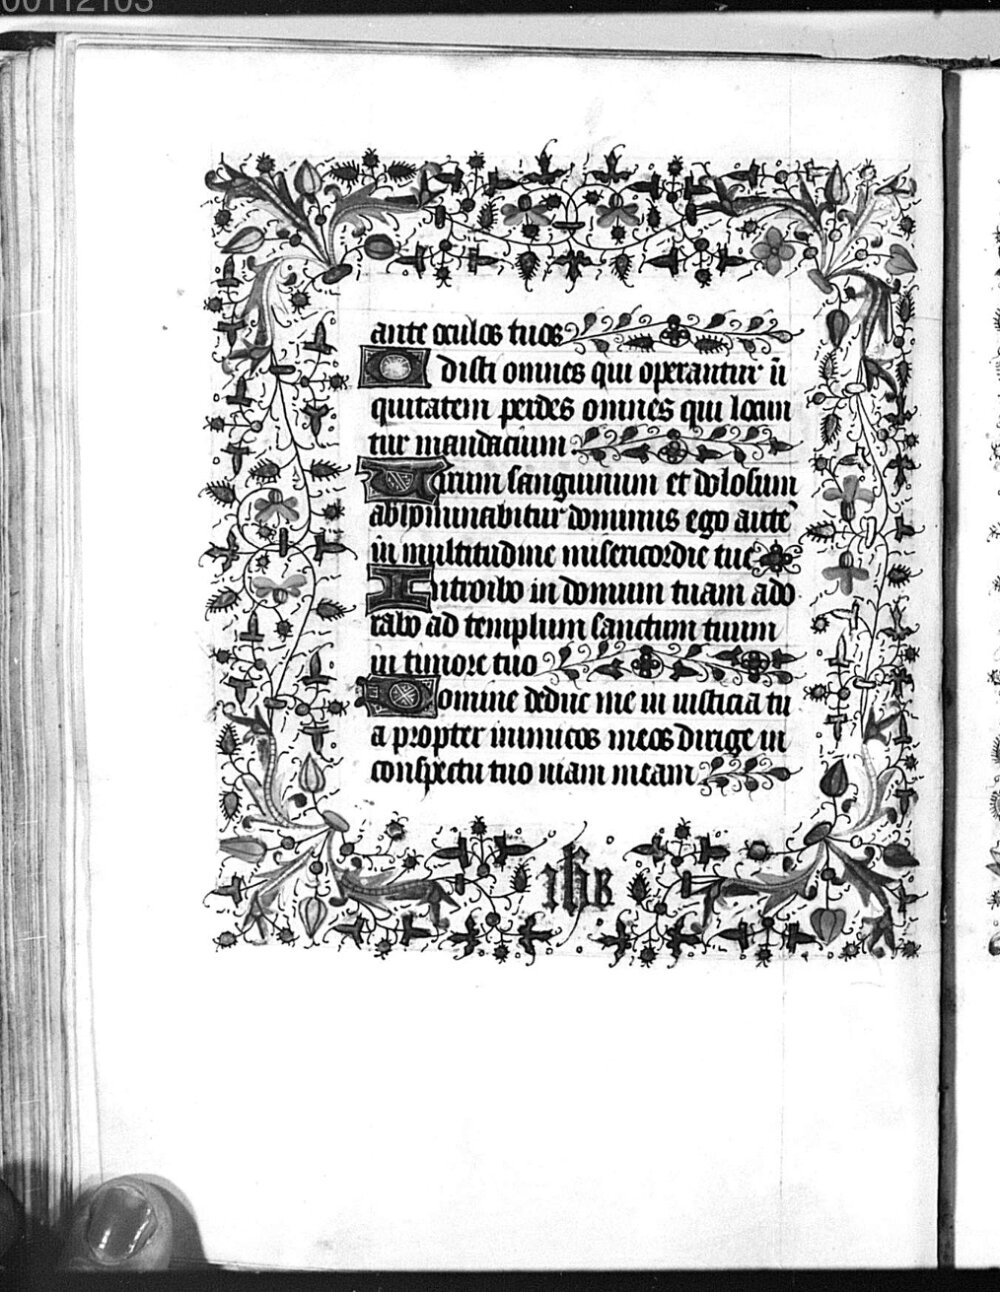 00112103
ante oculos tuos
Odisti omnes qui operantur ini
quitatem perdes omnes qui locun
tur mandacium
Virum sanguinum et dolosum
abhominabitur dominus ego autē
in multitudine misericordie tue
Introibo in domum tuam ado
rabo ad templum sanctum tuum
in timore tuo
Domine deduc me in iusticia tu
a propter inimicos meos dirige in
conspectu tuo uiam meam
ihs